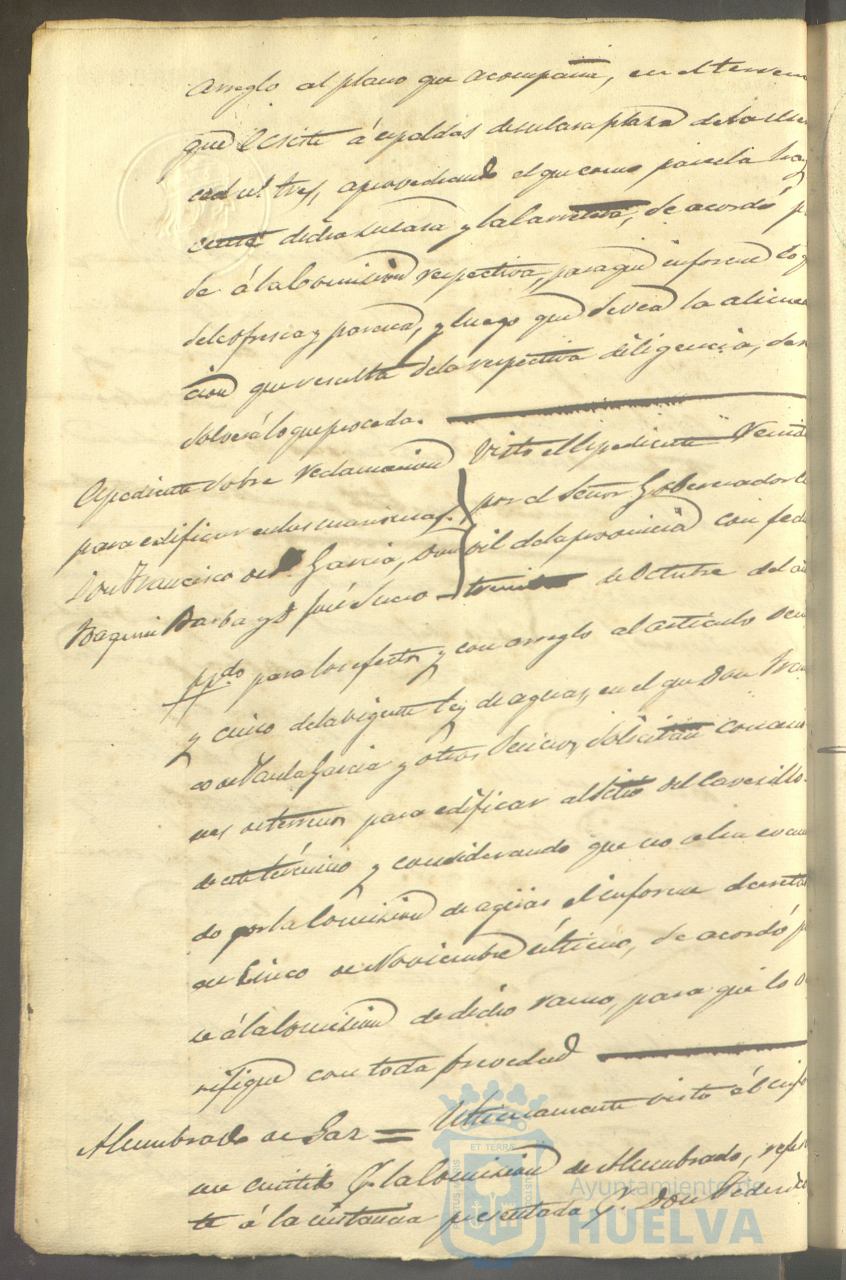 arreglo al plano que acompaña, en el terren
que ecsiste á espaldas de su casa plaza de
ced n.º tres, aprovechando el que como parcela hay
entre dicha su casa y la carretera, se acordó p
se á la Comision respectiva, para que informe lo q
se le ofresca y paresca, y luego que se vea la alinea
cion que resulta de la respectiva diligencia, se re
solverá lo que proceda.
Espediente sobre reclamacion
para edificar en las marismas.
Don Francisco de P. Garcia, Don
Joaquin Barba y D. José Suero
Visto el Espediente remiti
por el Señor Gobernador Ci
vil de la provincia con fecha
treinta de Octubre del a
pp.do para los efectos y con arreglo al articulo
y cinco de la vigente Ley de aguas, en el que Don Fran
co de Paula Garcia y otros vecinos, solicitan concecio
nes de terreno para edificar al sitio del
de este término y considerando que no se ha evacua
do por la Comision de aguas el informe decretado
en Cinco de Noviembre último, se acordó p
se á la Comision de dicho ramo, para que lo
rifique con toda brevedad
Alumbrado de Gas = Ultimamente visto el info
me emitido p.r la Comision de Alumbrado, refe
te á la instancia presentada p.r Don Federi
Ayuntamiento de
HUELVA